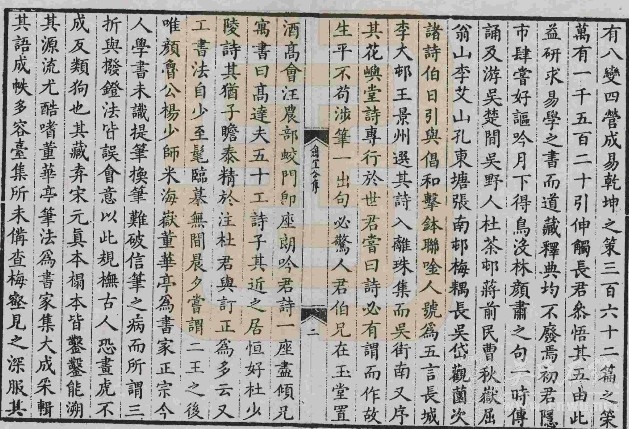 有八變四營成易乾坤之策三百六十二篇之策
萬有一千五百二十引伸觸長君叅悟其五由此
益研求易學之書而道藏釋典均不廢焉初君隱
市肆嘗好謳吟月下得鳥沒林顔肅之句一時傳
誦及游吳楚間吳野人杜茶邨蔣前民曹秋嶽屈
翁山李艾山孔東塘張南邨梅耦長吳岱觀薗次
諸詩伯日引與倡和擊鉢聯唫人號爲五言長城
李大邨王景州選其詩入離珠集而吳街南又序
其花嶼堂詩專行於世君嘗曰詩必有謂而作故
生平不苟涉筆一出句必驚人君伯兄在玉堂置
酒髙會汪農部蛟門即座朗吟君詩一座盡傾兄
寓書曰髙達夫五十工詩子其近之居恒好杜少
陵詩其猶子瞻泰精於注杜君與訂正爲多云又
工書法自少至髦臨摹無間晨夕嘗謂二王之後
唯顔魯公楊少師米海嶽董華亭爲書家正宗今
人學書未識提筆換筆難破信筆之病而所謂三
折與撥鐙法皆誤會意以此規橅古人恐畫虎不
成反類狗也其藏弆宋元眞本搨本皆鑿鑿能溯
其源流尤酷嗜董華亭筆法爲書家集大成采輯
其語成帙多容臺集所未備查梅壑見之深服其
二